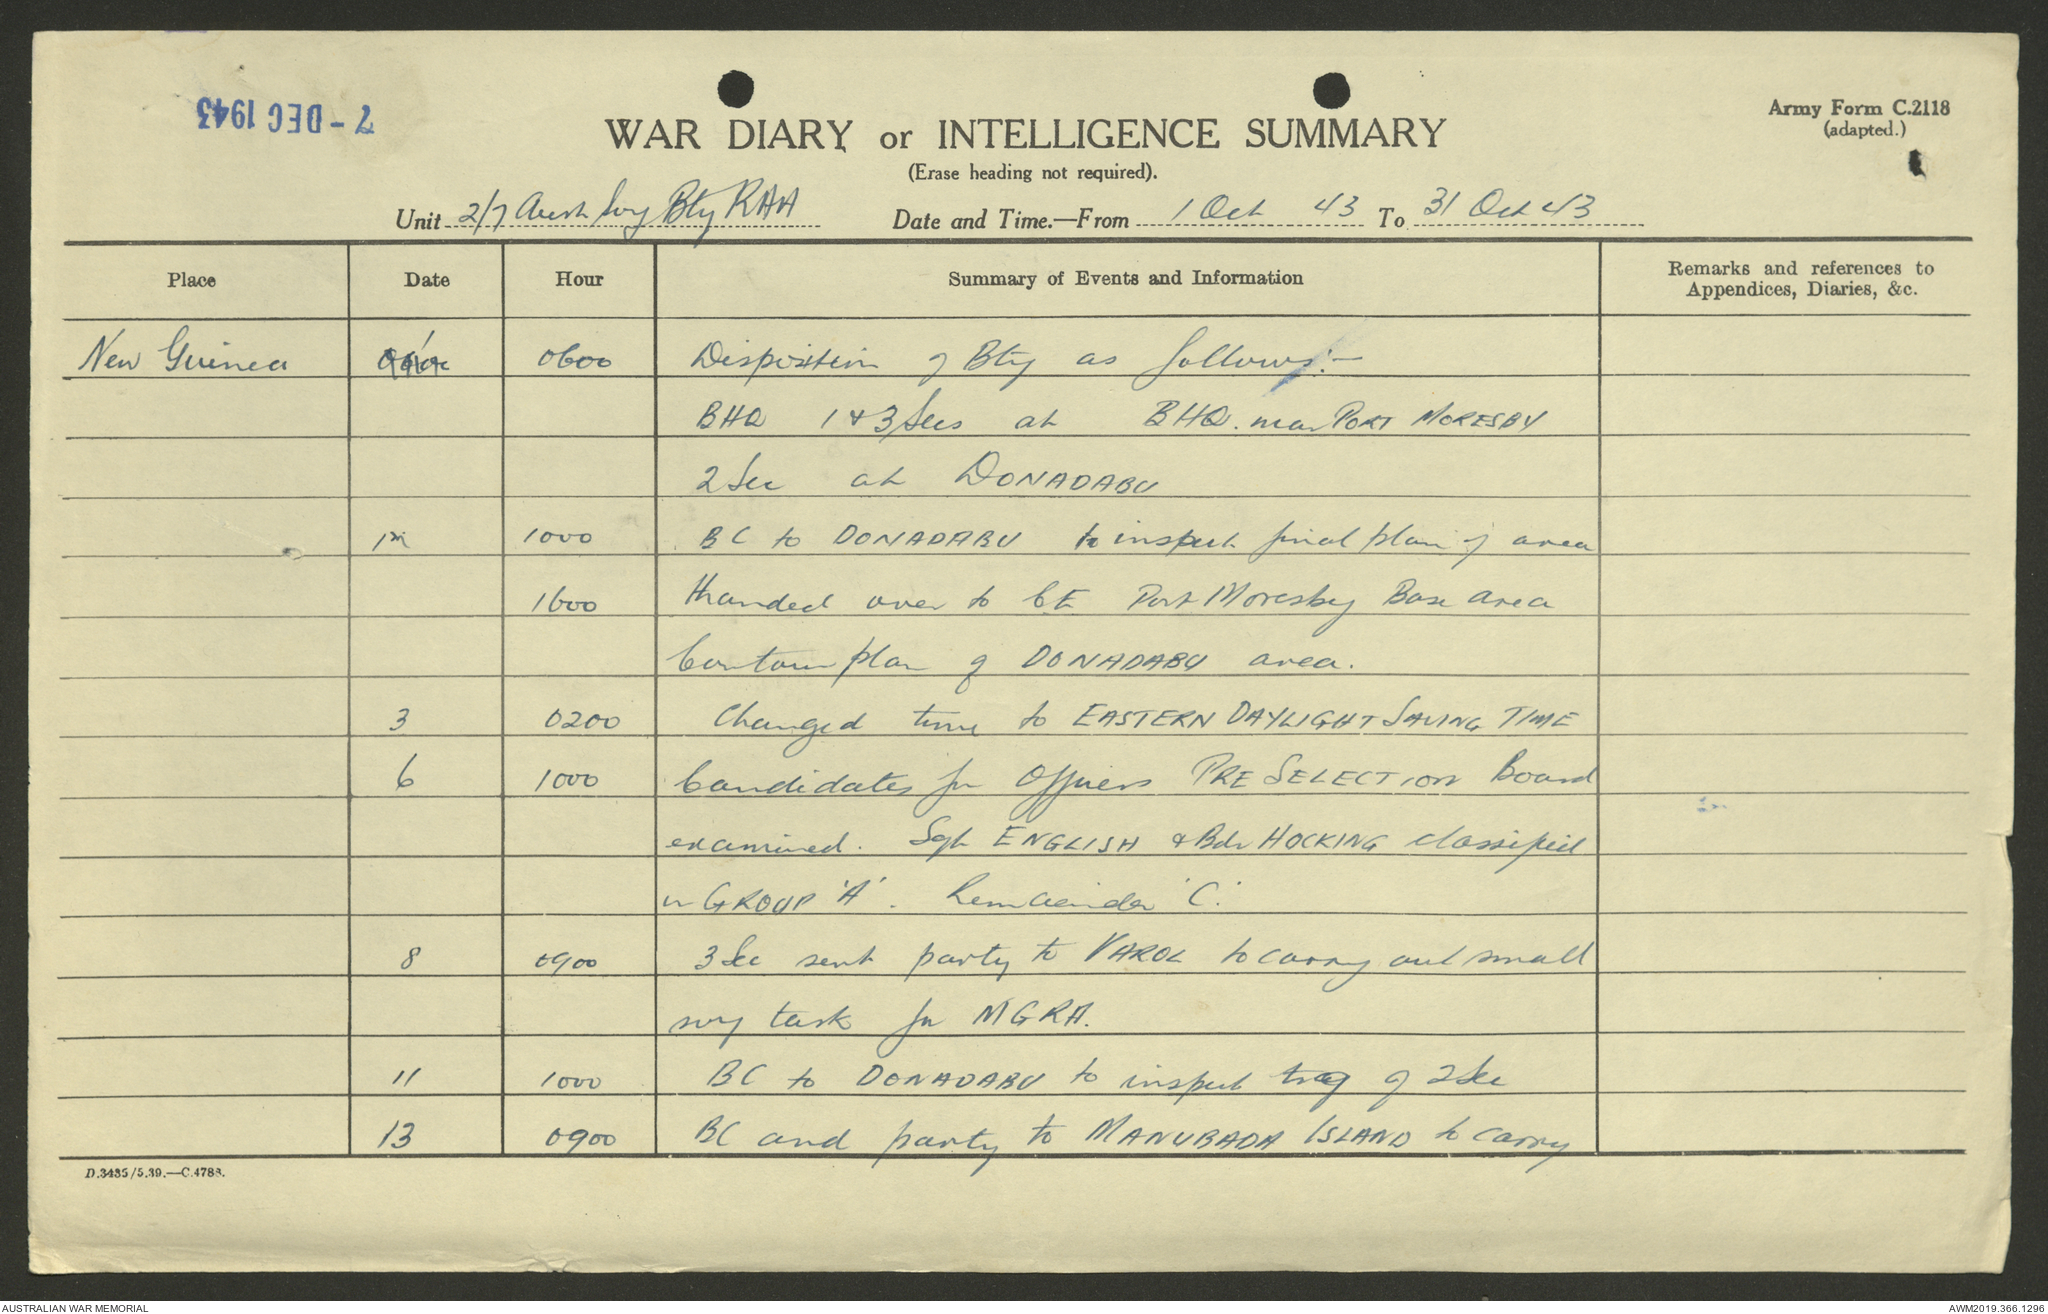 7 - DEC 1943
Army Form C.2118
(adapted.)
WAR DIARY or INTELLIGENCE SUMMARY
(Erase heading not required).
Unit 2/7 Aust Svy Bty RAA Date and Time.—From 1 Oct 43 To 31 Oct 43
Place Date Hour Summary of Events and Information Remarks and references to
Appendices, Diaries, &c.
New Guinea 1 0600 Disposition of Bty as follows:-
BHQ 1 & 3 Secs at BHQ. near PORT MORESBY
2 Sec at DONADABU
1000 BC to DONADABU to inspect final plan of area
1600 Handed over to CE Port Moresby Base area
Contour plan of DONADABU area.
3 0200 Changed time to EASTERN DAYLIGHT SAVING TIME
6 1000 Candidates for Officers PRE SELECTION Board
examined. Sgt ENGLISH & Bdr HOCKING classified
in GROUP 'A'. Remainder 'C'.
8 0900 3 Sec sent party to VAROL to carry out small
svy task for MGRA.
11 1000 BC to DONADABU to inspect trg of 2 Sec
13 0900 BC and party to MANUBADA ISLAND to carry
D.3435/5.39.—C.4783.
AUSTRALIAN WAR MEMORIAL AWM2019.366.1296